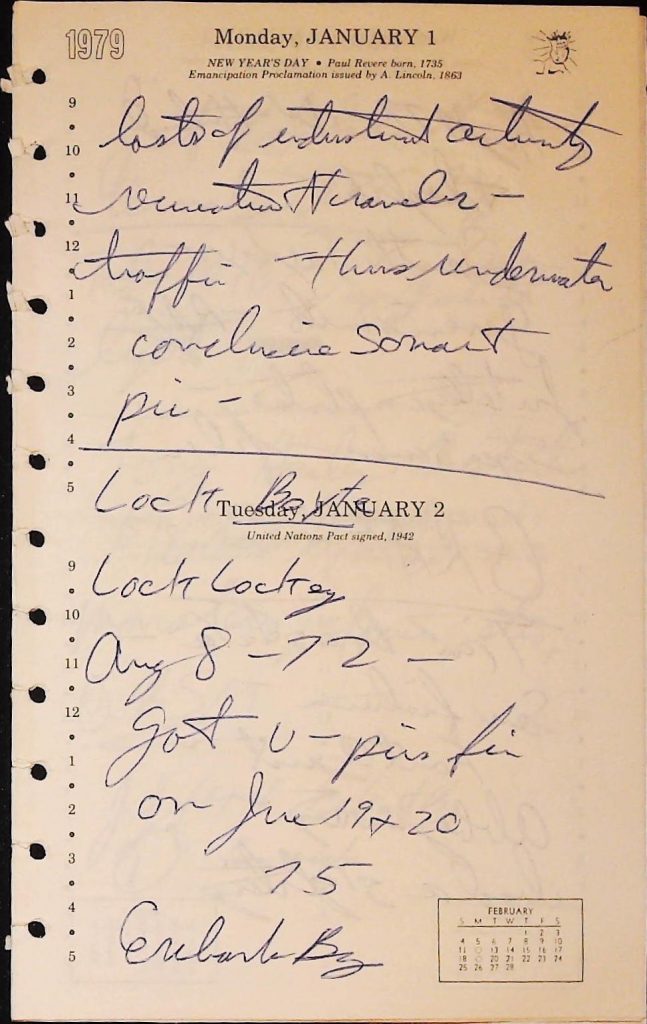 1979
Monday, JANUARY 1
NEW YEAR'S DAY • Paul Revere born, 1735
Emancipation Proclamation issued by A. Lincoln, 1863
9
10 lots of industrial activity
11 recreation travelers -
12 traffic - thus underwater
1
2 conclusive sonar
3 pic -
4
5 Lock
Tuesday, JANUARY 2
United Nations Pact signed, 1942
9 Loch Lockey
10
11 Aug 8 - 72 -
12
1 got u- pics fin
2 on June 19 & 20
3 75
4
5 Bay
FEBRUARY
S M T W T F S
1 2 3
4 5 6 7 8 9 10
11 12 13 14 15 16 17
18 19 20 21 22 23 24
25 26 27 28